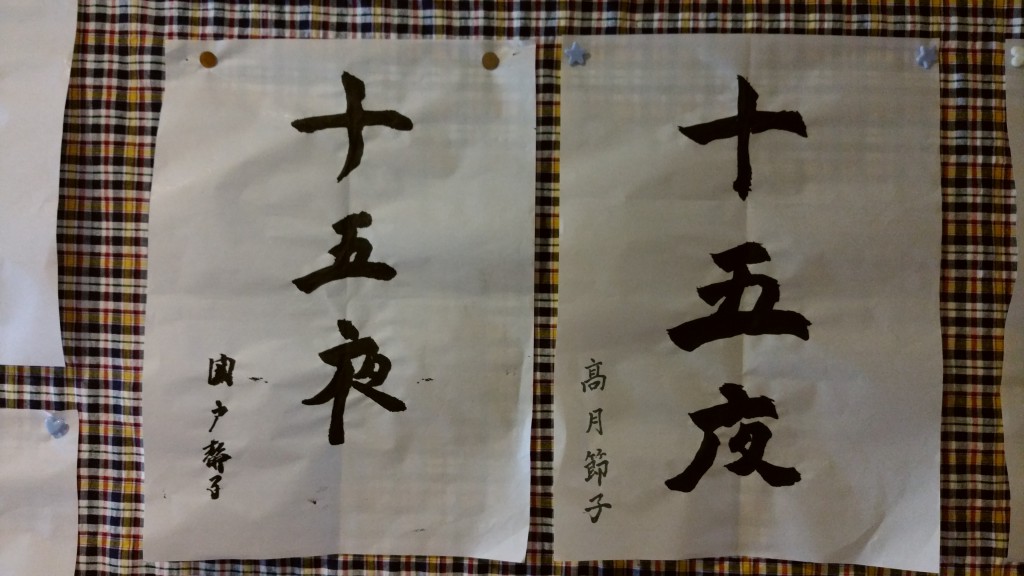 十五夜
髙月節子
十五夜
國戸静子